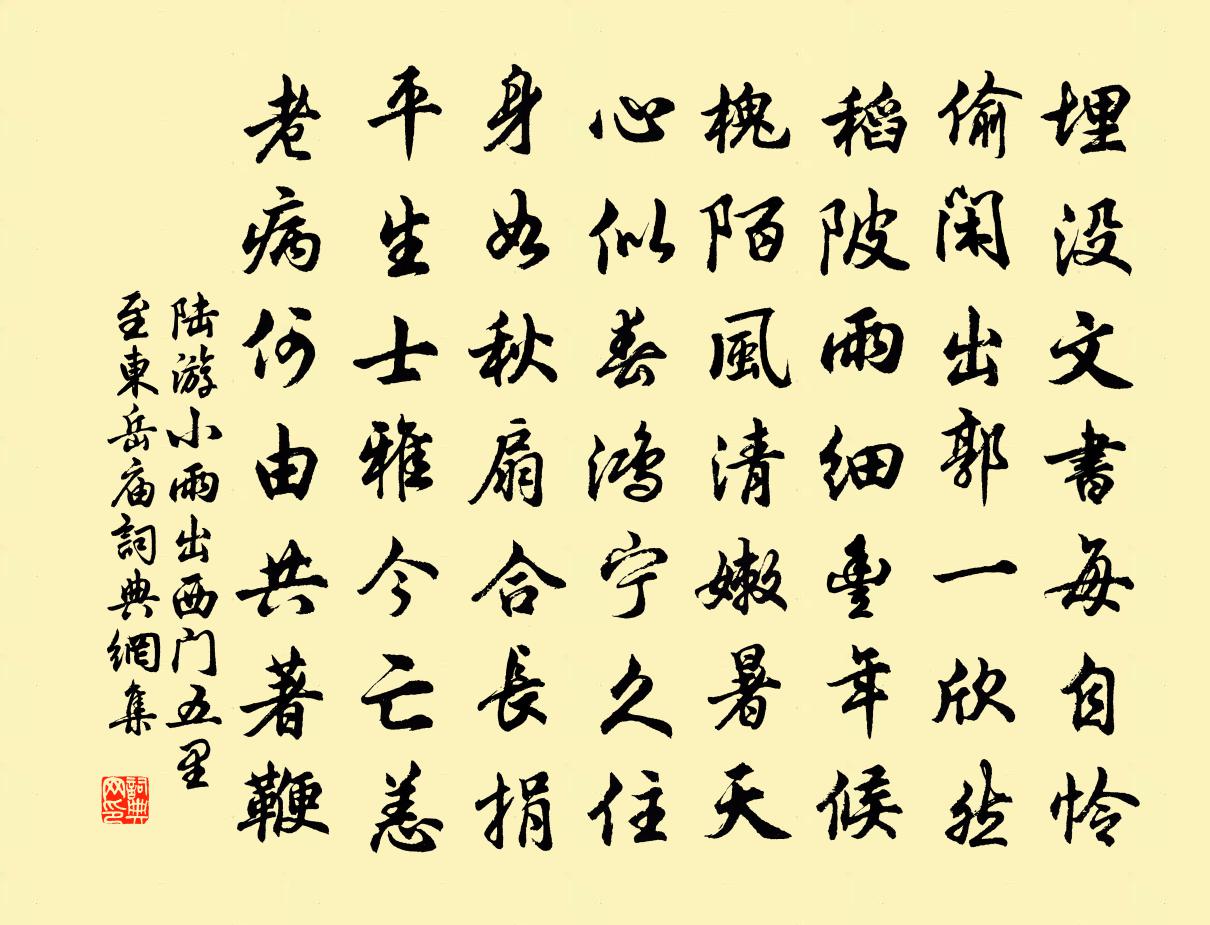 埋没文書每自怜
偷闲出郭一欣然
稻陂雨细豊年候
槐陌風清嫩暑天
心似春鸿宁久住
身如秋扇合長捐
平生士雅今亡恙
老病何由共著鞭
陆游小雨出西门五里
至東岳庙詞典網集
詞典
网印